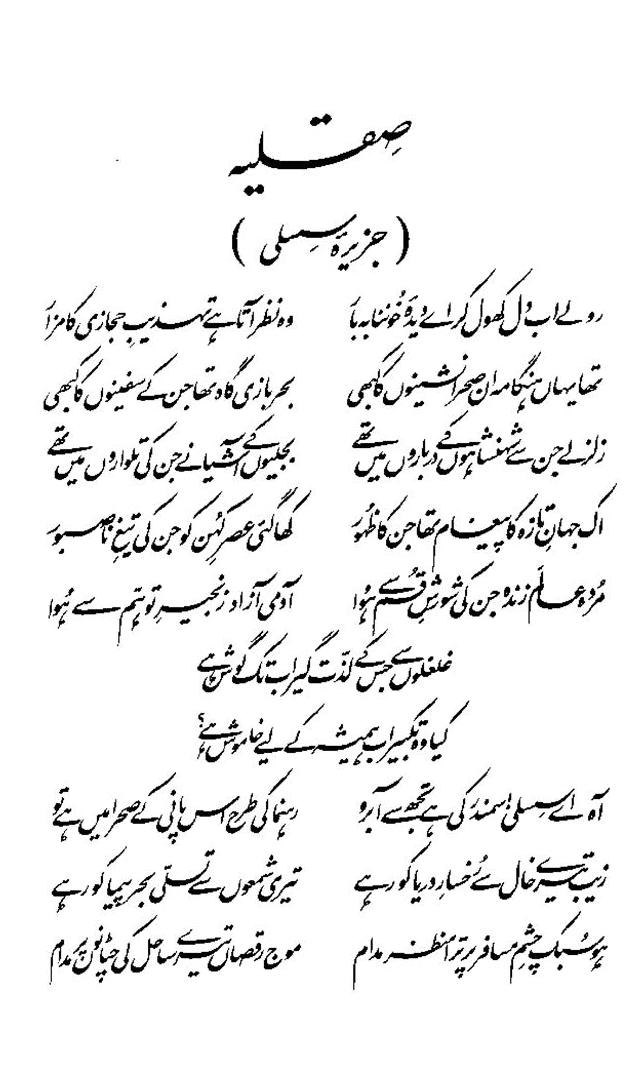 صِقلیہ
(جزیرۂ سِسلی)
رو لے اب دل کھول کر اے دیدۂ خُوننابہ بار وہ نظر آتا ہے تہذیبِ حجازی کا مزار
تھا یہاں ہنگامہ ان صحرا نشینوں کا کبھی بحر بازی گاہ تھا جن کے سفینوں کا کبھی
زلزلے جن سے شہنشاہوں کے درباروں میں تھے بجلیوں کے آشیانے جن کی تلواروں میں تھے
اک جہانِ تازہ کا پیغام تھا جن کا ظہُور کھا گئی عصرِ کُہن کو جن کی تیغِ ناصبور
مُردہ عالَم زندہ جن کی شورشِ قُم سے ہُوا آدمی آزاد زنجیرِ توہّم سے ہُوا
غلغلوں سے جس کے لذّت گیر اب تک گوش ہے
کیا وہ تکبیر اب ہمیشہ کے لیے خاموش ہے؟
آہ اے سِسلی! سمندر کی ہے تجھ سے آبرو رہنما کی طرح اس پانی کے صحرا میں ہے تو
زیب تیرے خال سے رُخسارِ دریا کو رہے تیری شمعوں سے تسلّی بحر پیما کو رہے
ہو سُبک چشمِ مسافر پر ترا منظر مدام موج رقصاں تیرے ساحل کی چٹانوں پر مدام